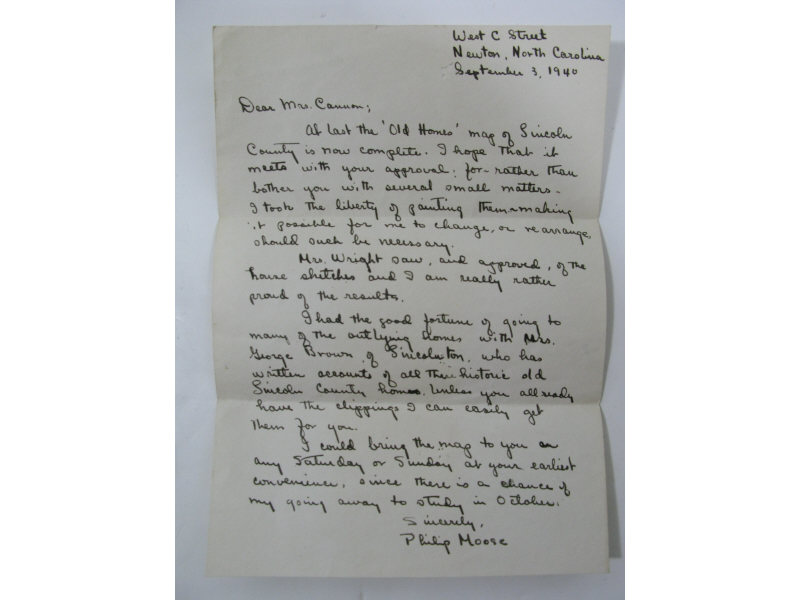 West C Street
Newton, North Carolina
September 3, 1940
Dear Mrs. Cannon;
At last the 'Old Homes' map of Lincoln
County is now complete. I hope that it
meets with your approval; for - rather than
bother you with several small matters -
I took the liberty of painting them - making
it possible for me to change, or rearrange,
should such be necessary.
Mrs. Wright saw, and approved, of the
house sketches and I am really rather
proud of the results.
I had the good fortune of going to
many of the outlying homes with Mrs.
George Brown of Lincolnton, who has
written accounts of all their historic old
Lincoln County homes. Unless you allready
have the clippings I can easily get
them for you.
I could bring the map to you on
any Saturday or Sunday at your earliest
convenience, since there is a chance of
my going away to study in October.
Sincerely,
Philip Moose